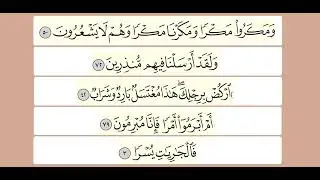 وَمَكَرُوا۟ مَكْرًا وَمَكَرْنَا مَكْرًا وَهُمْ لَا يَشْعُرُونَ ٥٠
وَلَقَدْ أَرْسَلْنَا فِيهِم مُّنذِرِينَ ٧٢
ٱرْكُضْ بِرِجْلِكَۖ هَٰذَا مُغْتَسَلٌۢ بَارِدٌ وَشَرَابٌ ٤٢
أَمْ أَبْرَمُوٓا۟ أَمْرًا فَإِنَّا مُبْرِمُونَ ٧٩
فَٱلْجَٰرِيَٰتِ يُسْرًا ٣